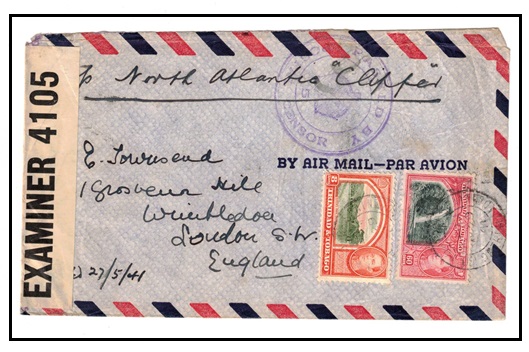 p North Atlantic "Clipper"
EXAMINER 4105
BY
CENSOR
BY AIR MAIL—PAR AVION
E. Townsend
1 Grosvenor Hill
Wimbledon
London S.W.
England
27/5/41
TRINIDAD & TOBAGO
60